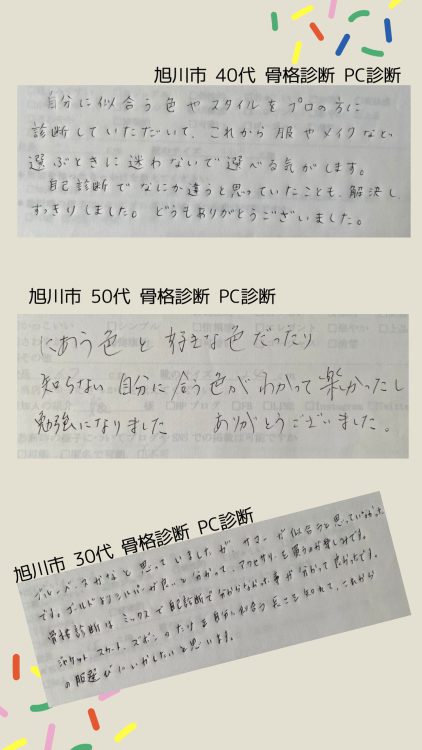 旭川市 40代 骨格診断 PC診断
自分に似合う色やスタイルをプロの方に
診断していただいて、これから服やメイクなど
選ぶときに迷わないで選べる気がします。
自己診断でなにか違うと思っていたことも、解決し、
すっきりしました。どうもありがとうございました。
旭川市 50代 骨格診断 PC診断
にあう色と好きな色だったり
知らない自分に合う色がわかって楽しかったし
勉強になりました ありがとうございました。
旭川市 30代 骨格診断 PC診断
ブルーベースかなと思っていましたが、サマーが似合うと思っていなかった
です。ゴールドよりシルバーが良いと分かって、アクセサリーを買うのが楽しみです。
骨格診断はミックスで自己診断で分からなかった事が分かって良かったです。
ジャケット、スカート、ズボンのたけも自分に似合う長さを知れて、これから
の服選びにいかしたいと思います。